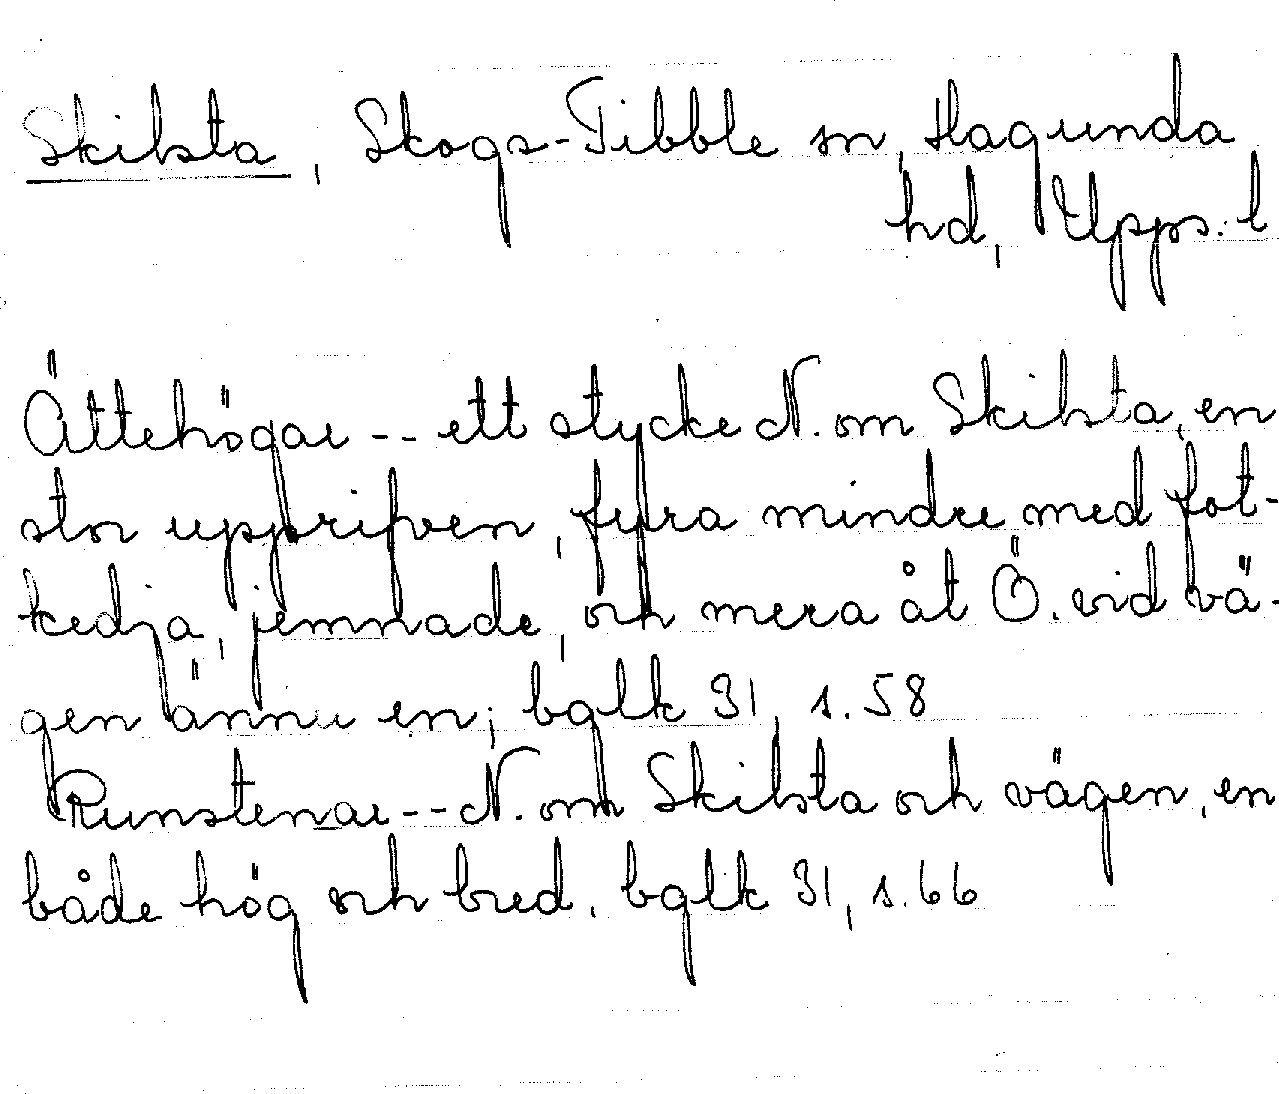 Skilsta, Skogs-Tibble sn, Hagunda
hd, Upps. l
Ättehögar -- ett stycke N. om Skilsta, en
stor upprifven, fyra mindre med fot-
kedja, jemnade, och mera åt Ö. vid vä-
gen ännu en; bglk 31, s. 58
Runstenar -- N. om Skilsta och vägen, en
både hög och bred. bglk 31, s. 66